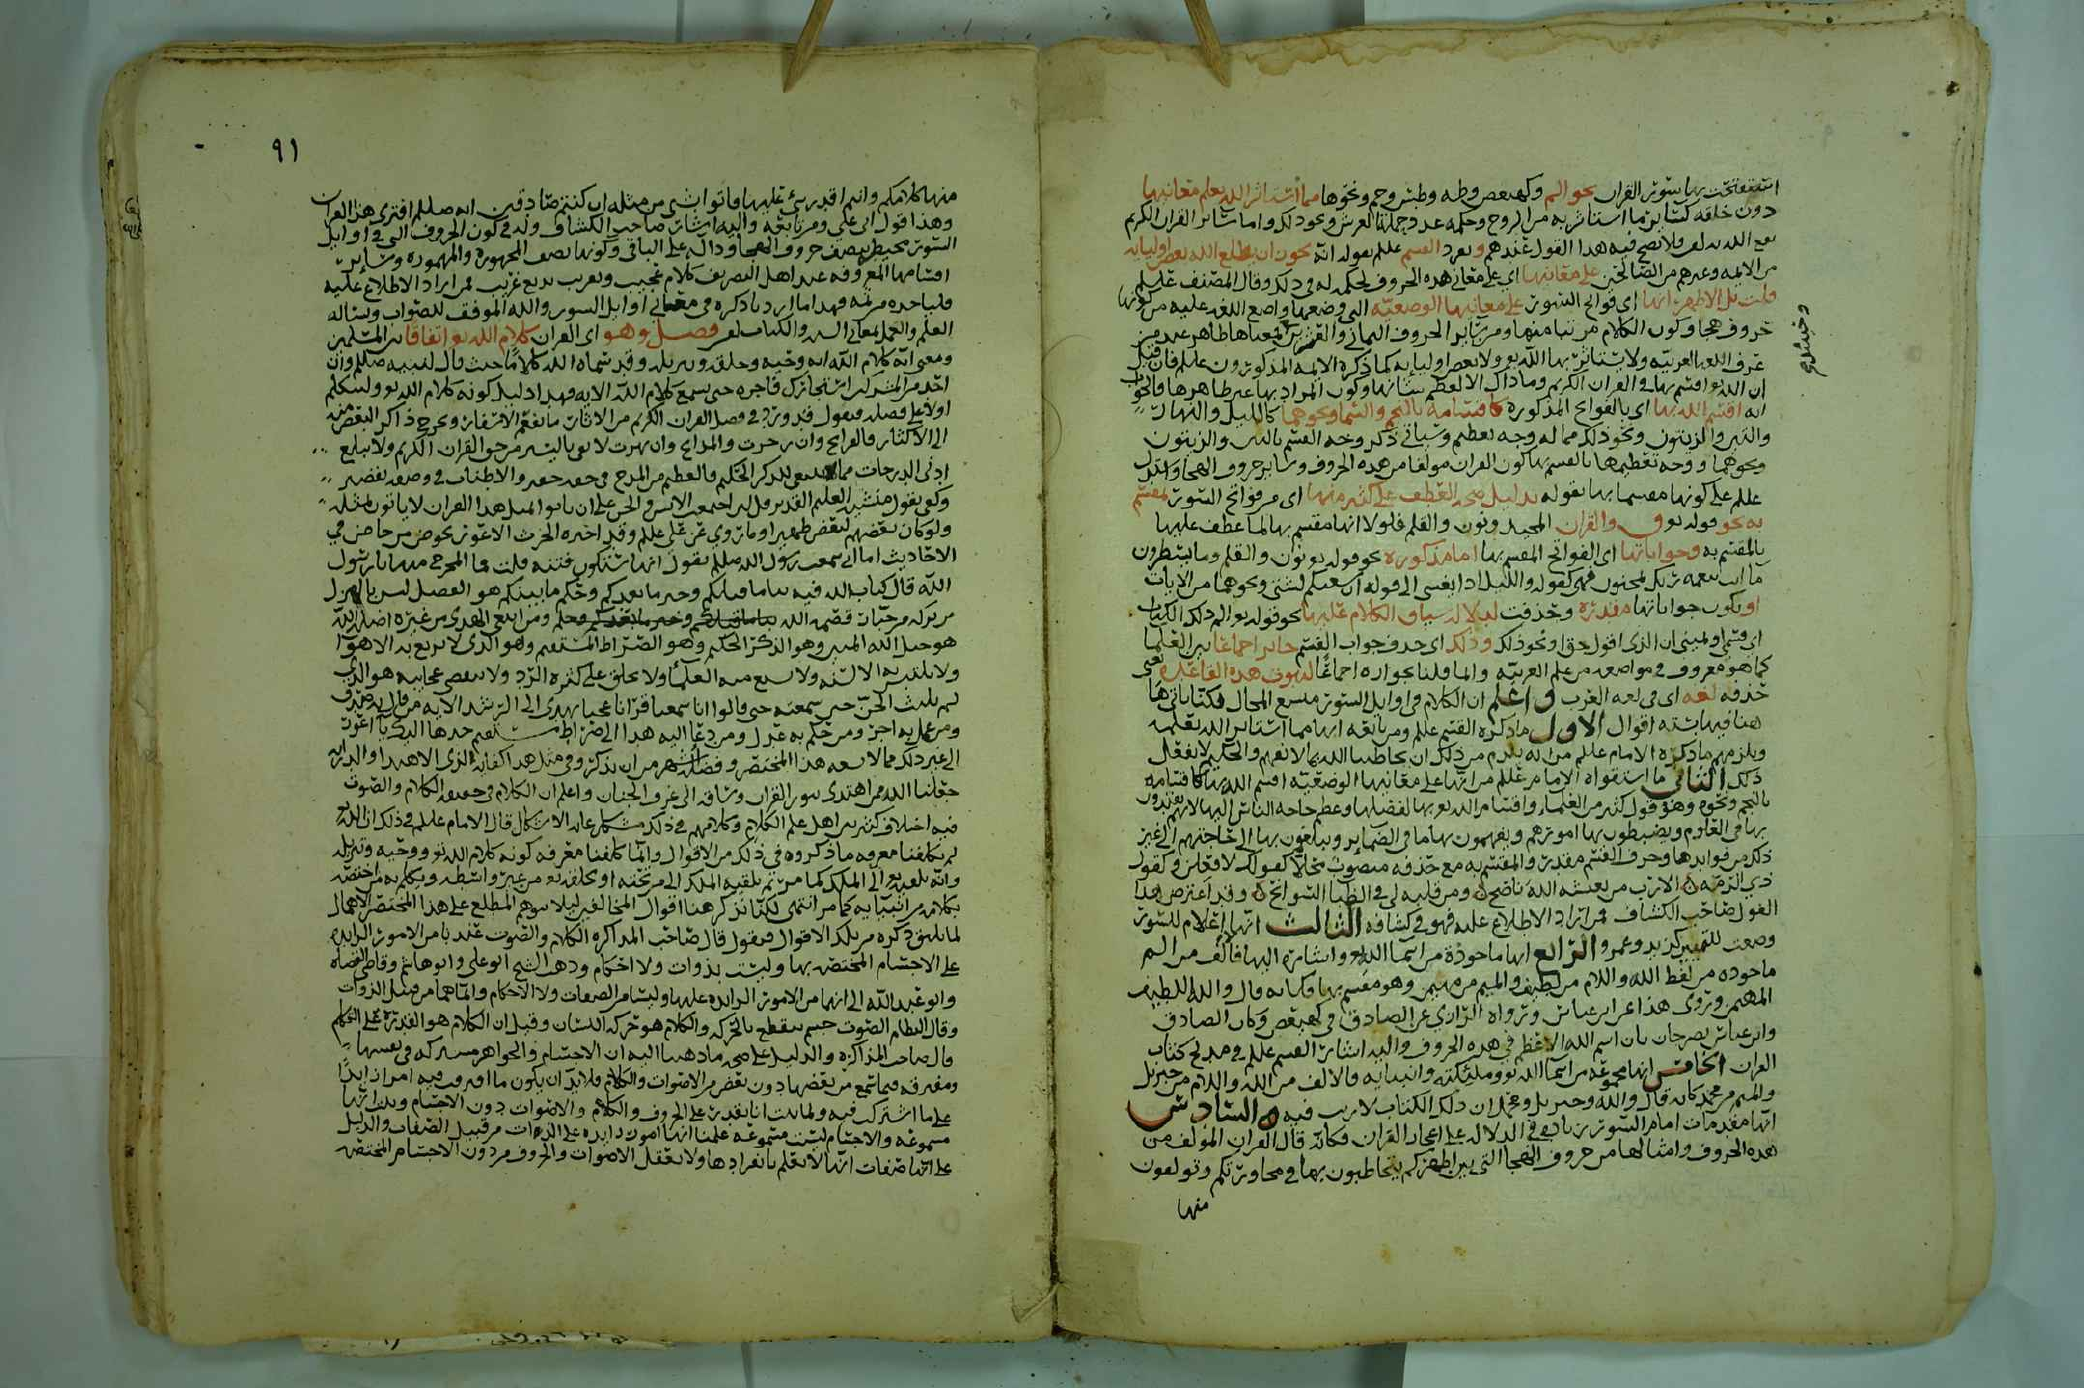 استفتحت بها سور القران نحو الم وكهيعص وطه وطس وحم ونحوها مما استاثر الله بعلم معانيها
دون خلقه كسائر ما استاثر به من الروح وحكمه عدد حملة العرش ونحو ذلك واما سائر القران الكريم
هذا القول عندهم وتفرد القسم علم بقوله انه يجوز ان يطلع الله بعض اوليايه
من الايمه وغيرهم من الصالحين على معانيها اي على معاني هذه الحروف لحكمه له في ذلك وقال المصنف علم
قلت بل الاظهر انها اي فواتح السور على معانيها الوضعيه التي وضعها واضع اللغه عليه من كونها
حروف هجا وكون الكلام مركبا منها ومن سائر الحروف الثمانيه والعشرين معناها ظاهر عند من
عرف اللغه العربيه ولا يستاثر بها الله تع ولا بعض اوليايه كما ذكره الايمه المذكورون علم فان قيل
ان الله تع اقسم بها والقران الكريم وما ذاك الا لعظم شانها وكون المراد بها غير ظاهرها فالجواب
انه اقسم الله بها اي بالفواتح المذكوره كاقسامه بالنجم والسما ونحوهما كالليل والنهار
والتين والزيتون ونحو ذلك مما له وجه تعظيم وسياتي ذكر وجه القسم بالتين والزيتون
ونحوهما ووجه تعظيمها بالقسم بها كون القران مولفا من هذه الحروف وسائر حروف الهجا واستدل
علم على كونها مقسما بها بقوله بدليل صحه العطف على كثير منها اي من فواتح السور لمقسم
به نحو قوله تع ق والقران المجيد ونون والقلم فلولا انها مقسم بها لما عطف عليها
بالمقسم به وجواباتها اي الفواتح المقسم بها اما مذكوره نحو قوله تع نون والقلم وما يسطرون
ما انت بنعمة ربك بمجنون فهي كقوله والليل اذا يغشى الى قوله ان سعيكم لشتى ونحوهما من الايات
او يكون جواباتها مقدره وحذفت لدلاله سياق الكلام عليها نحو قوله تع الم ذلك الكتاب
اي قسمي او يميني ان الذي اقول حق او نحو ذلك وذلك اي حذف جواب القسم جائز اجماعا بين العلما
كما هو معروف في مواضعه من علم العربيه وانما قلنا بجوازه اجماعا لثبوت هذه القاعده يعني
حذفه لغه اي في لغه العرب واعلم ان الكلام في اوايل السور متسع المجال فكتاباتي ها
هنا فيها سته اقوال الاول ما ذكره القسم علم ومن تابعه انها مما استاثر الله بعلمه
ويلزمهم ما ذكره الامام علم من انه يلزم من ذلك ان يخاطبنا الله بما لا نفهم والحكيم لا يفعل
ذلك الثاني ما استقواه الامام علم من انها على معانيها الوضعيه اقسم الله بها كاقسامه
بالنجم ونحوه وهو قول كثير من العلماء واقسام الله تع بها لفضلها وعظم حاجه الناس اليها لانهم يعتبرون
بها في العلوم ويضبطون بها امورهم ويفهمون بها ما في الضماير ويبلغون بها الى حاجتهم الى غير
ذلك من فوايدها وحرف القسم مقدر والمقسم به مع حذفه منصوب محلا كقولك الله لافعلن وكقول
ذي الرمه الا رب من تغتشه الله ناصح ومن قلبه لي في الظبا السوانح وقد اعترض هذا
القول صاحب الكشاف فمن اراد الاطلاع عليه فهو في كشافه الثالث انها اعلام للسور
وضعت للتمييز كزيد وعمرو الرابع انها ماخوذة من اسما الله تع واشارة اليها فالف من الم
ماخوذه من لفظ الله واللام من لطيف والميم من مهيمن وهو مقسم بها وكانه قال والله اللطيف
المهيمن وتروى هذا عن ابن عباس ورواه الرازي عن الصادق في كهيعص وكان الصادق
وابن عباس يصرحان بان اسم الله الاعظم في هذه الحروف واليه اشار القسم علم في مديح كتاب
القران الخامس انها مجموعه من اسما الله تع وملئكته وانبيايه فالالف من الله واللام من جبريل
والميم من محمد كانه قال والله وجبريل ومحمد ان ذلك الكتاب لا ريب فيه السادس
انها مقدمات امام السور زيادة في الدلاله على اعجاز القران فكانه قال القران المولف من
هذه الحروف وامثالها من حروف الهجا التي بين اظهركم يتخاطبون بها في محاورتكم وتولفون
منها
٩١
منها كلامكم وانتم اقدر شيء عليها فاتوا بشي من مثله ان كنتم صادقين انه صلعم افترى هذا القران
وهذا قول ابي علي ومن تابعه واليه اشار صاحب الكشاف وله في كون الحروف التي في اوايل
السور محيط بنصف حروف الهجا ودالة على الباقي وكونها نصف المجهوره والمهموسه وسائر
اقسامها المعروفه عند اهل التصريف كلام عجيب وتعريب بديع غريب فمن اراد الاطلاع عليه
فلياخذه منه وهذا ما اردنا ذكره في معاني اوايل السور والله الموفق للصواب ونساله
العلم والعمل بمعاني السنه والكتاب فصل وهو اي القران كلام الله تع اتفاقا بين المسلمين
ومعنى انه كلام الله انه وحيه وخلقه وتنزيله وقد سماه الله كلاما حيث قال لنبيه صلعم وان
احد من المشركين استجارك فاجره حتى يسمع كلام الله الايه فهذا دليل كونه كلام الله تع ولنتكلم
اولا على فضله فنقول قد ورد في فضل القران الكريم من الاثار ما تفعم الاسفار
ادنى الدرجات مما ينبغي للذكر الحكيم والعظيم من المدح في حقه حقير والاطناب في وصفه تقصير
وكفى بقول منشيه العليم القدير قل لئن اجتمعت الانس والجن على ان ياتوا بمثل هذا القران لا ياتون بمثله
ولو كان بعضهم لبعض ظهيرا وما روي عن علي علم وقد اخبره الحرث الاعور بخوض من خاض في
الاحاديث اما اني سمعت رسول الله صلعم يقول انها ستكون فتنه قلت فما المخرج منها يا رسول
الله قال كتاب الله فيه نبا ما قبلكم وخبر ما بعدكم وحكم ما بينكم هو الفصل ليس بالهزل
من تركه من جبار قصمه الله ومن ابتغى الهدى من غيره اضله الله
هو حبل الله المتين وهو الذكر الحكيم وهو الصراط المستقيم وهو الذي لا تزيغ به الاهوا
ولا تلتبس به الالسنه ولا يشبع منه العلماء ولا يخلق على كثره الرد ولا تنقضي عجايبه هو الذي
لم يلبث الجن حين سمعته حتى قالوا انا سمعنا قرانا عجبا يهدي الى الرشد الايه من قال به صدق
ومن عمل به اجر ومن حكم به عدل ومن دعا اليه هدا الى صراط مستقيم خذها اليك يا اعور
الى غير ذلك مما لا يسعه هذا المختصر وفضائله اشهر من ان تذكر وفي مثل هذا كفايه
جعلنا الله ممن اهتدى بنور القران وساقه الى غرف الجنان واعلم ان الكلام في حقيقه الكلام والصوت
فيه اختلاف كثير بين اهل علم الكلام وكلامهم في ذلك مشكل غايه الاشكال قال الامام علم في ذلك ان الله
لم يكلفنا معرفه ما ذكروه في ذلك من الاقوال وانما كلفنا معرفه كونه كلام الله تع ووحيه وتنزيله
وانه يلقيه الى الملك كما مر ثم يلقيه الملك الى من تحته او يخلقه تع من غير واسطه ويكلم به من اختصه
بكلامه من انبيايه كما مر انتهى لكنا نذكر هنا اقوال المخالفين ليلا يتوهم المطلع على هذا المختصر الاهمال
لما يليق ذكره من تلك الاقوال فنقول قال صاحب المذاكره الكلام والصوت عندنا من الامور الزايده
على الاجسام المختصه بها وليست بذوات ولا احكام وذهب الشيخ ابو علي وابو هاشم وقاضي القضاه
وابو عبد الله الى انهما من الامور الزايده عليها وليسا من الصفات ولا الاحكام وانما هما من قبيل الذوات
وقال النظام الصوت جسم ينقطع بالحركه والكلام هو حركه اللسان وقيل ان الكلام هو القدره على التكلم
قال صاحب المذاكره والدليل على صحه ما ذهبنا اليه ان الاجسام والجواهر مشتركه في نفسها
ومفترقه فيما تسمع من بعضها دون بعض من الاصوات والكلام فلا بد ان يكون ما افترقت فيه امرا زايدا
على ما اشتركت فيه ولما ثبت انا نقدر على الحروف والكلام والاصوات دون الاجسام
مسموعه والاجسام ليست مسموعه علمنا انها امور زايده على الذوات من قبيل الصفات والدليل
على انها صفات انها لا تعلم بانفرادها ولا تعقل الاصوات والحروف من دون الاجسام المختصه